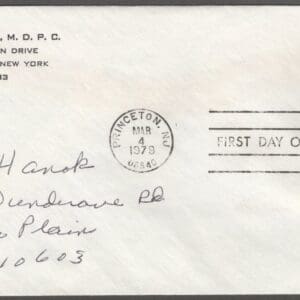 , M. D. P. C.
N DRIVE
NEW YORK
3
PRINCETON, NJ
MAR
4
1979
08540
FIRST DAY O
Hanok
Dundrave Rd
Plain
10603